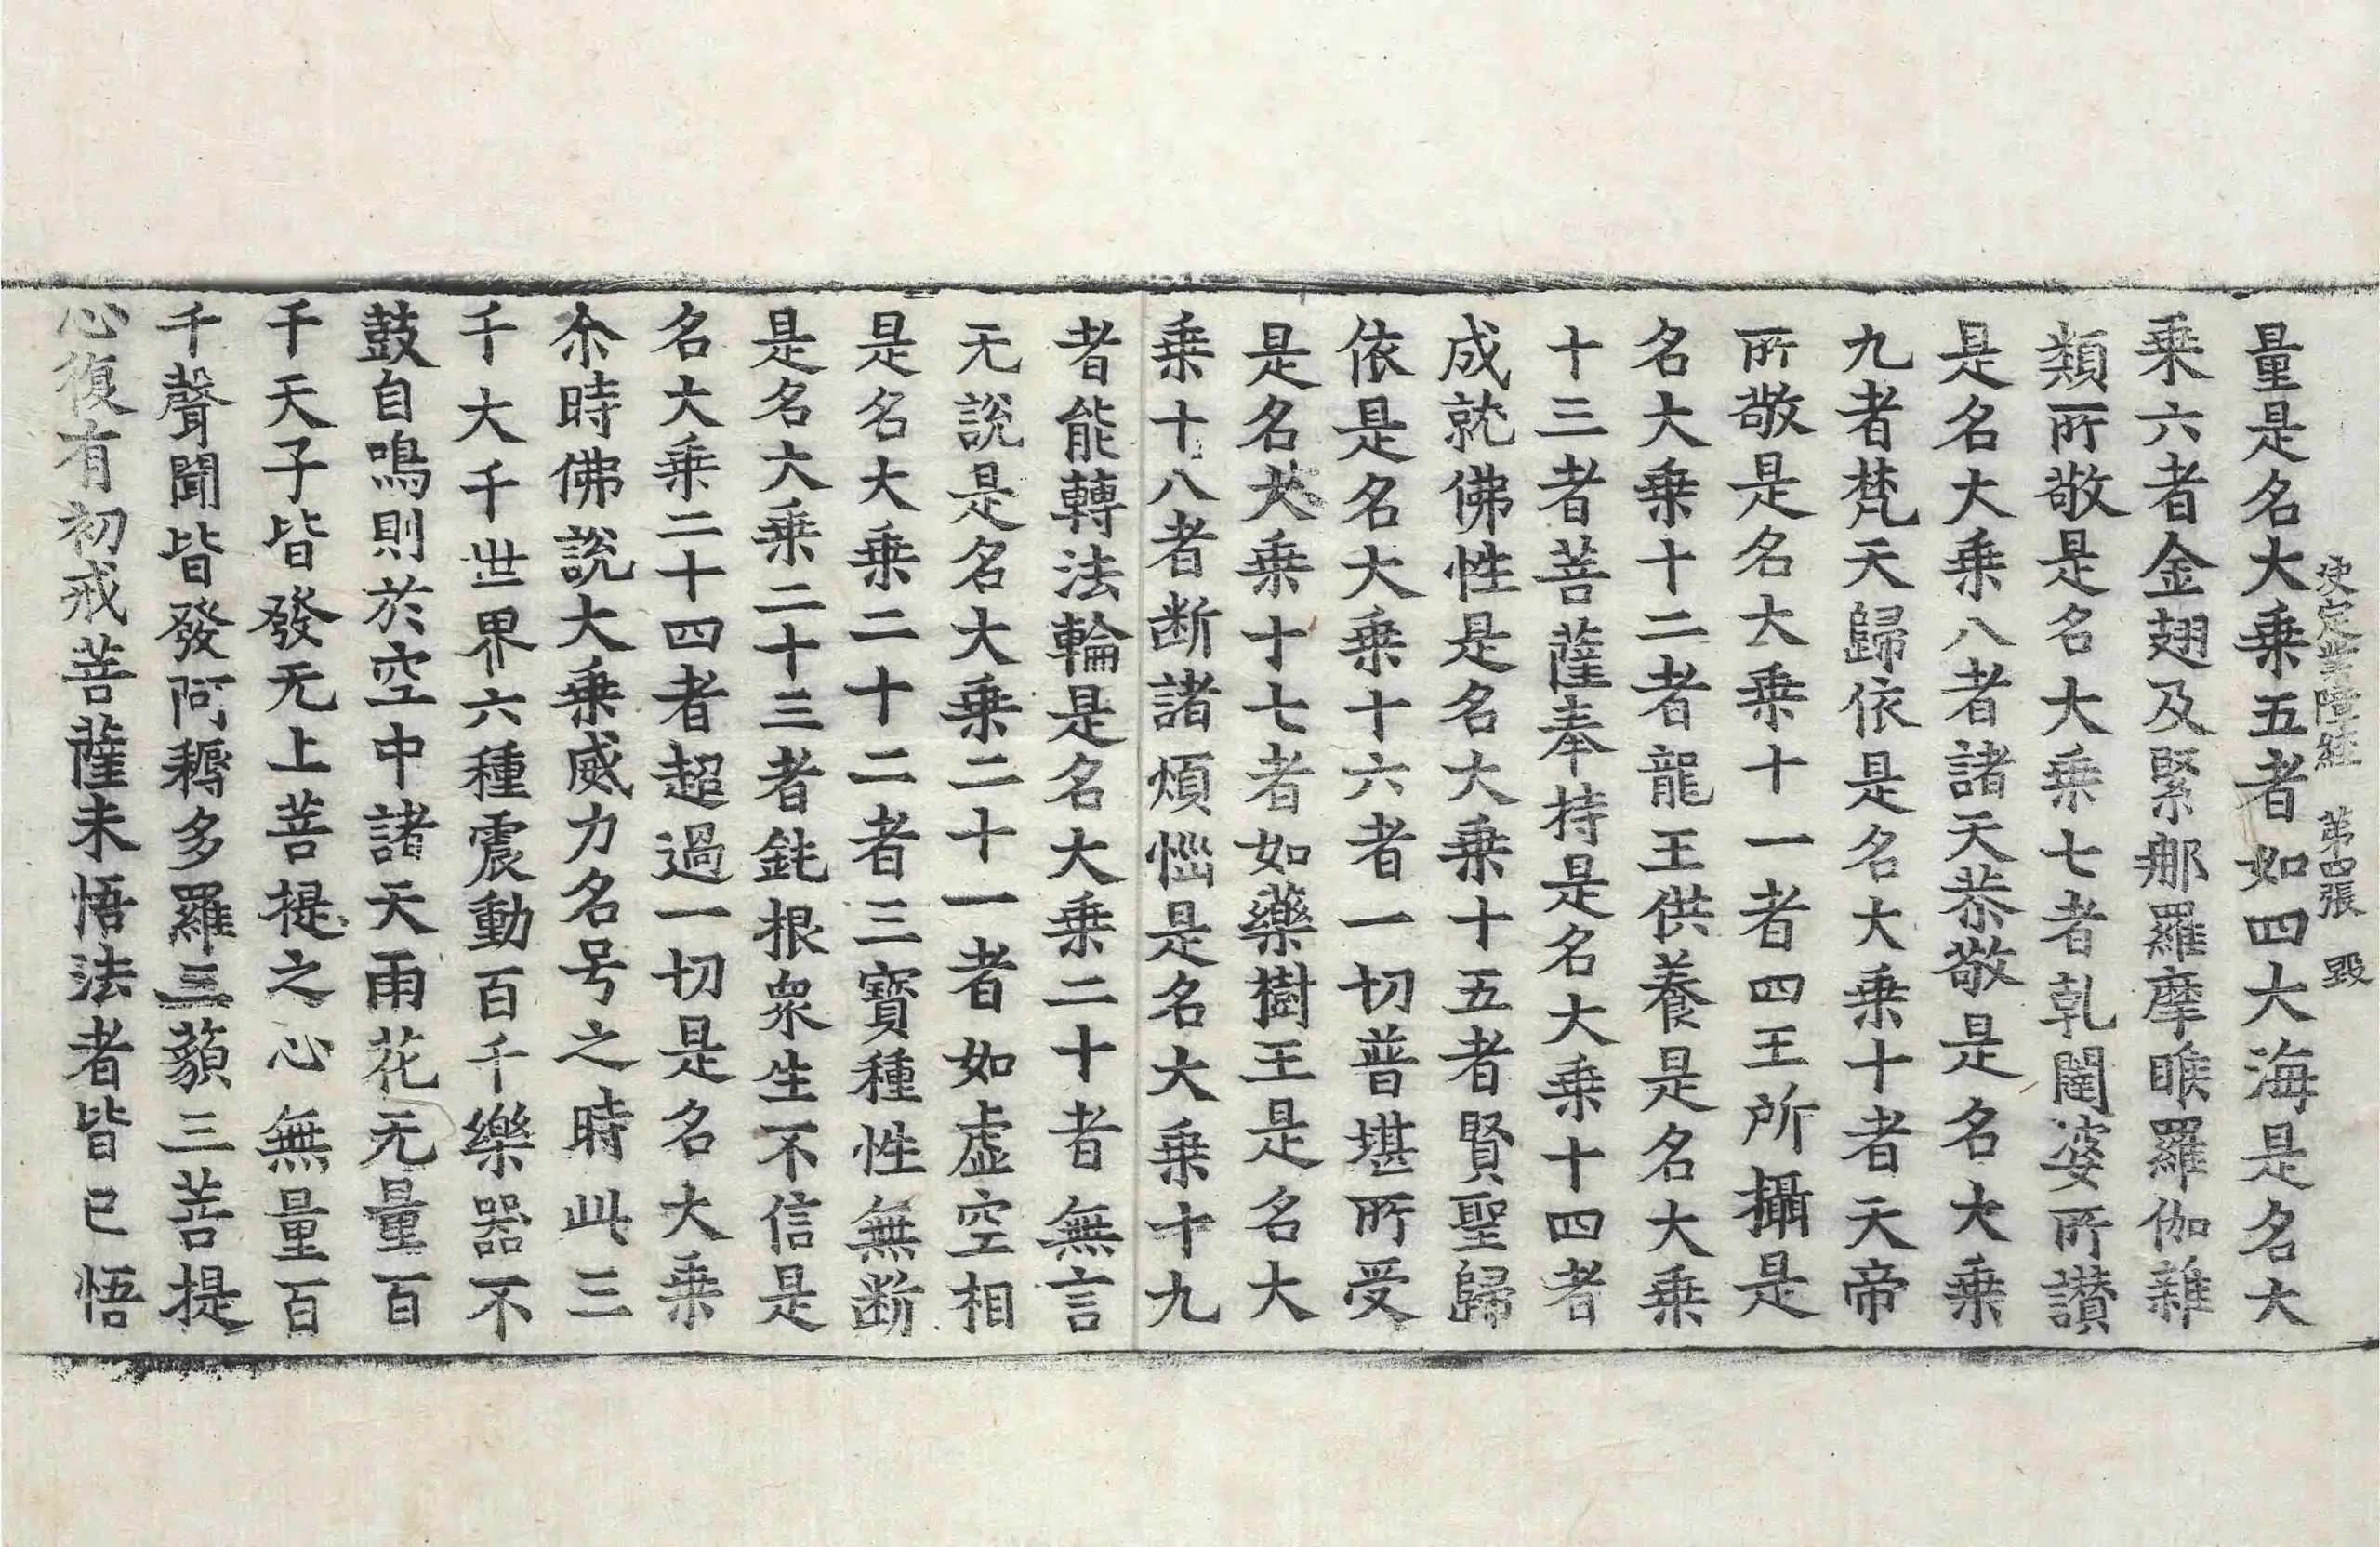 決定業障經 第四張 毀
量是名大乗五者如四大海是名大
乗六者金翅及緊那羅摩睺羅伽雜
類所敬是名大乗七者乹闥婆所讃
是名大乗八者諸天恭敬是名大乗
九者梵天歸依是名大乗十者天帝
所敬是名大乗十一者四王所攝是
名大乗十二者龍王供養是名大乗
十三者菩薩奉持是名大乗十四者
成就佛性是名大乗十五者賢聖歸
依是名大乗十六者一切普堪所受
是名大乗十七者如藥樹王是名大
乗十八者断諸煩惱是名大乗十九
者能轉法輪是名大乗二十者無言
无說是名大乗二十一者如虛空相
是名大乗二十二者三寶種性無断
是名大乗二十三者鈍根衆生不信是
名大乗二十四者超過一切是名大乗
尒時佛說大乗威力名号之時此三
千大千世界六種震動百千樂器不
鼓自鳴則於空中諸天雨花无量百
千天子皆發无上菩提之心無量百
千聲聞皆發阿耨多羅三藐三菩提
心復有初戒菩薩未悟法者皆已悟